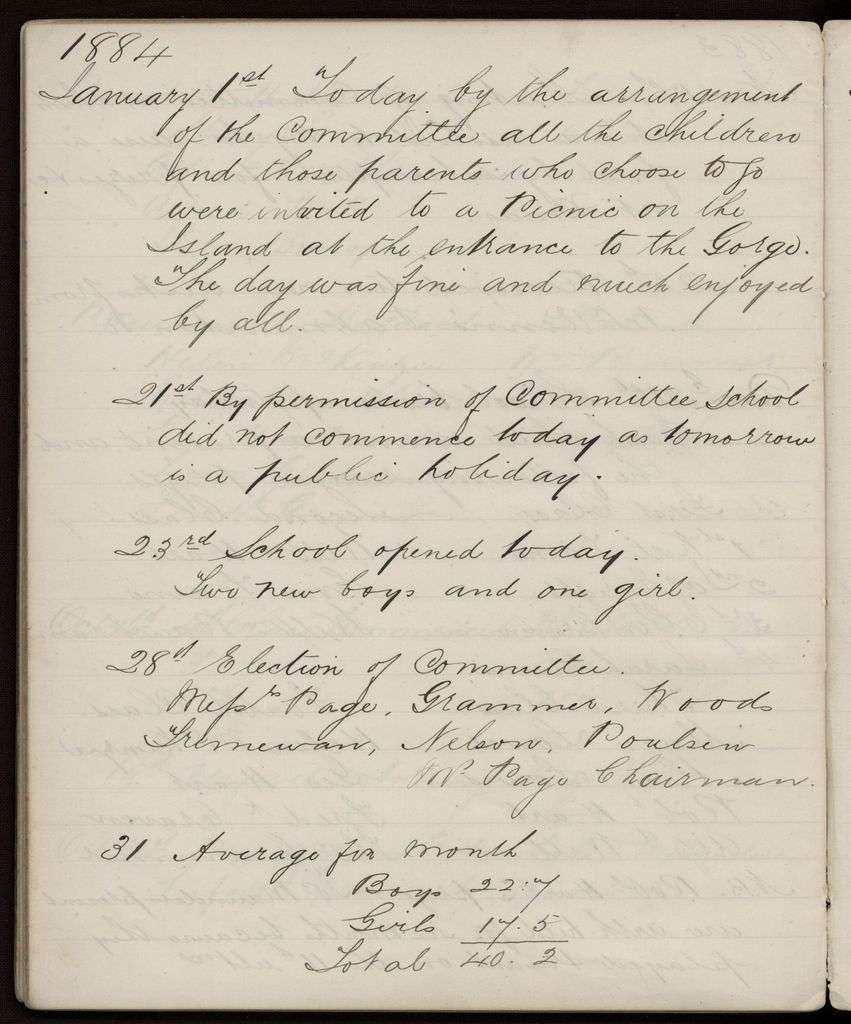 1884
January 1st Today by the arrangement
of the Committee all the children
and those parents who choose to go
were invited to a Picnic on the
Island at the entrance to the Gorge.
The day was fine and much enjoyed
by all.
21st By permission of Committee School
did not commence today as tomorrow
is a public holiday.
23rd School opened today.
Two new boys and one girl.
28th Election of Committee.
Messrs Page, Grammer, Woods
Tremewan, Nelson, Poulsen
Mr Page Chairman.
31 Average for month
Boys 22.7
Girls 17.5
Total 40.2